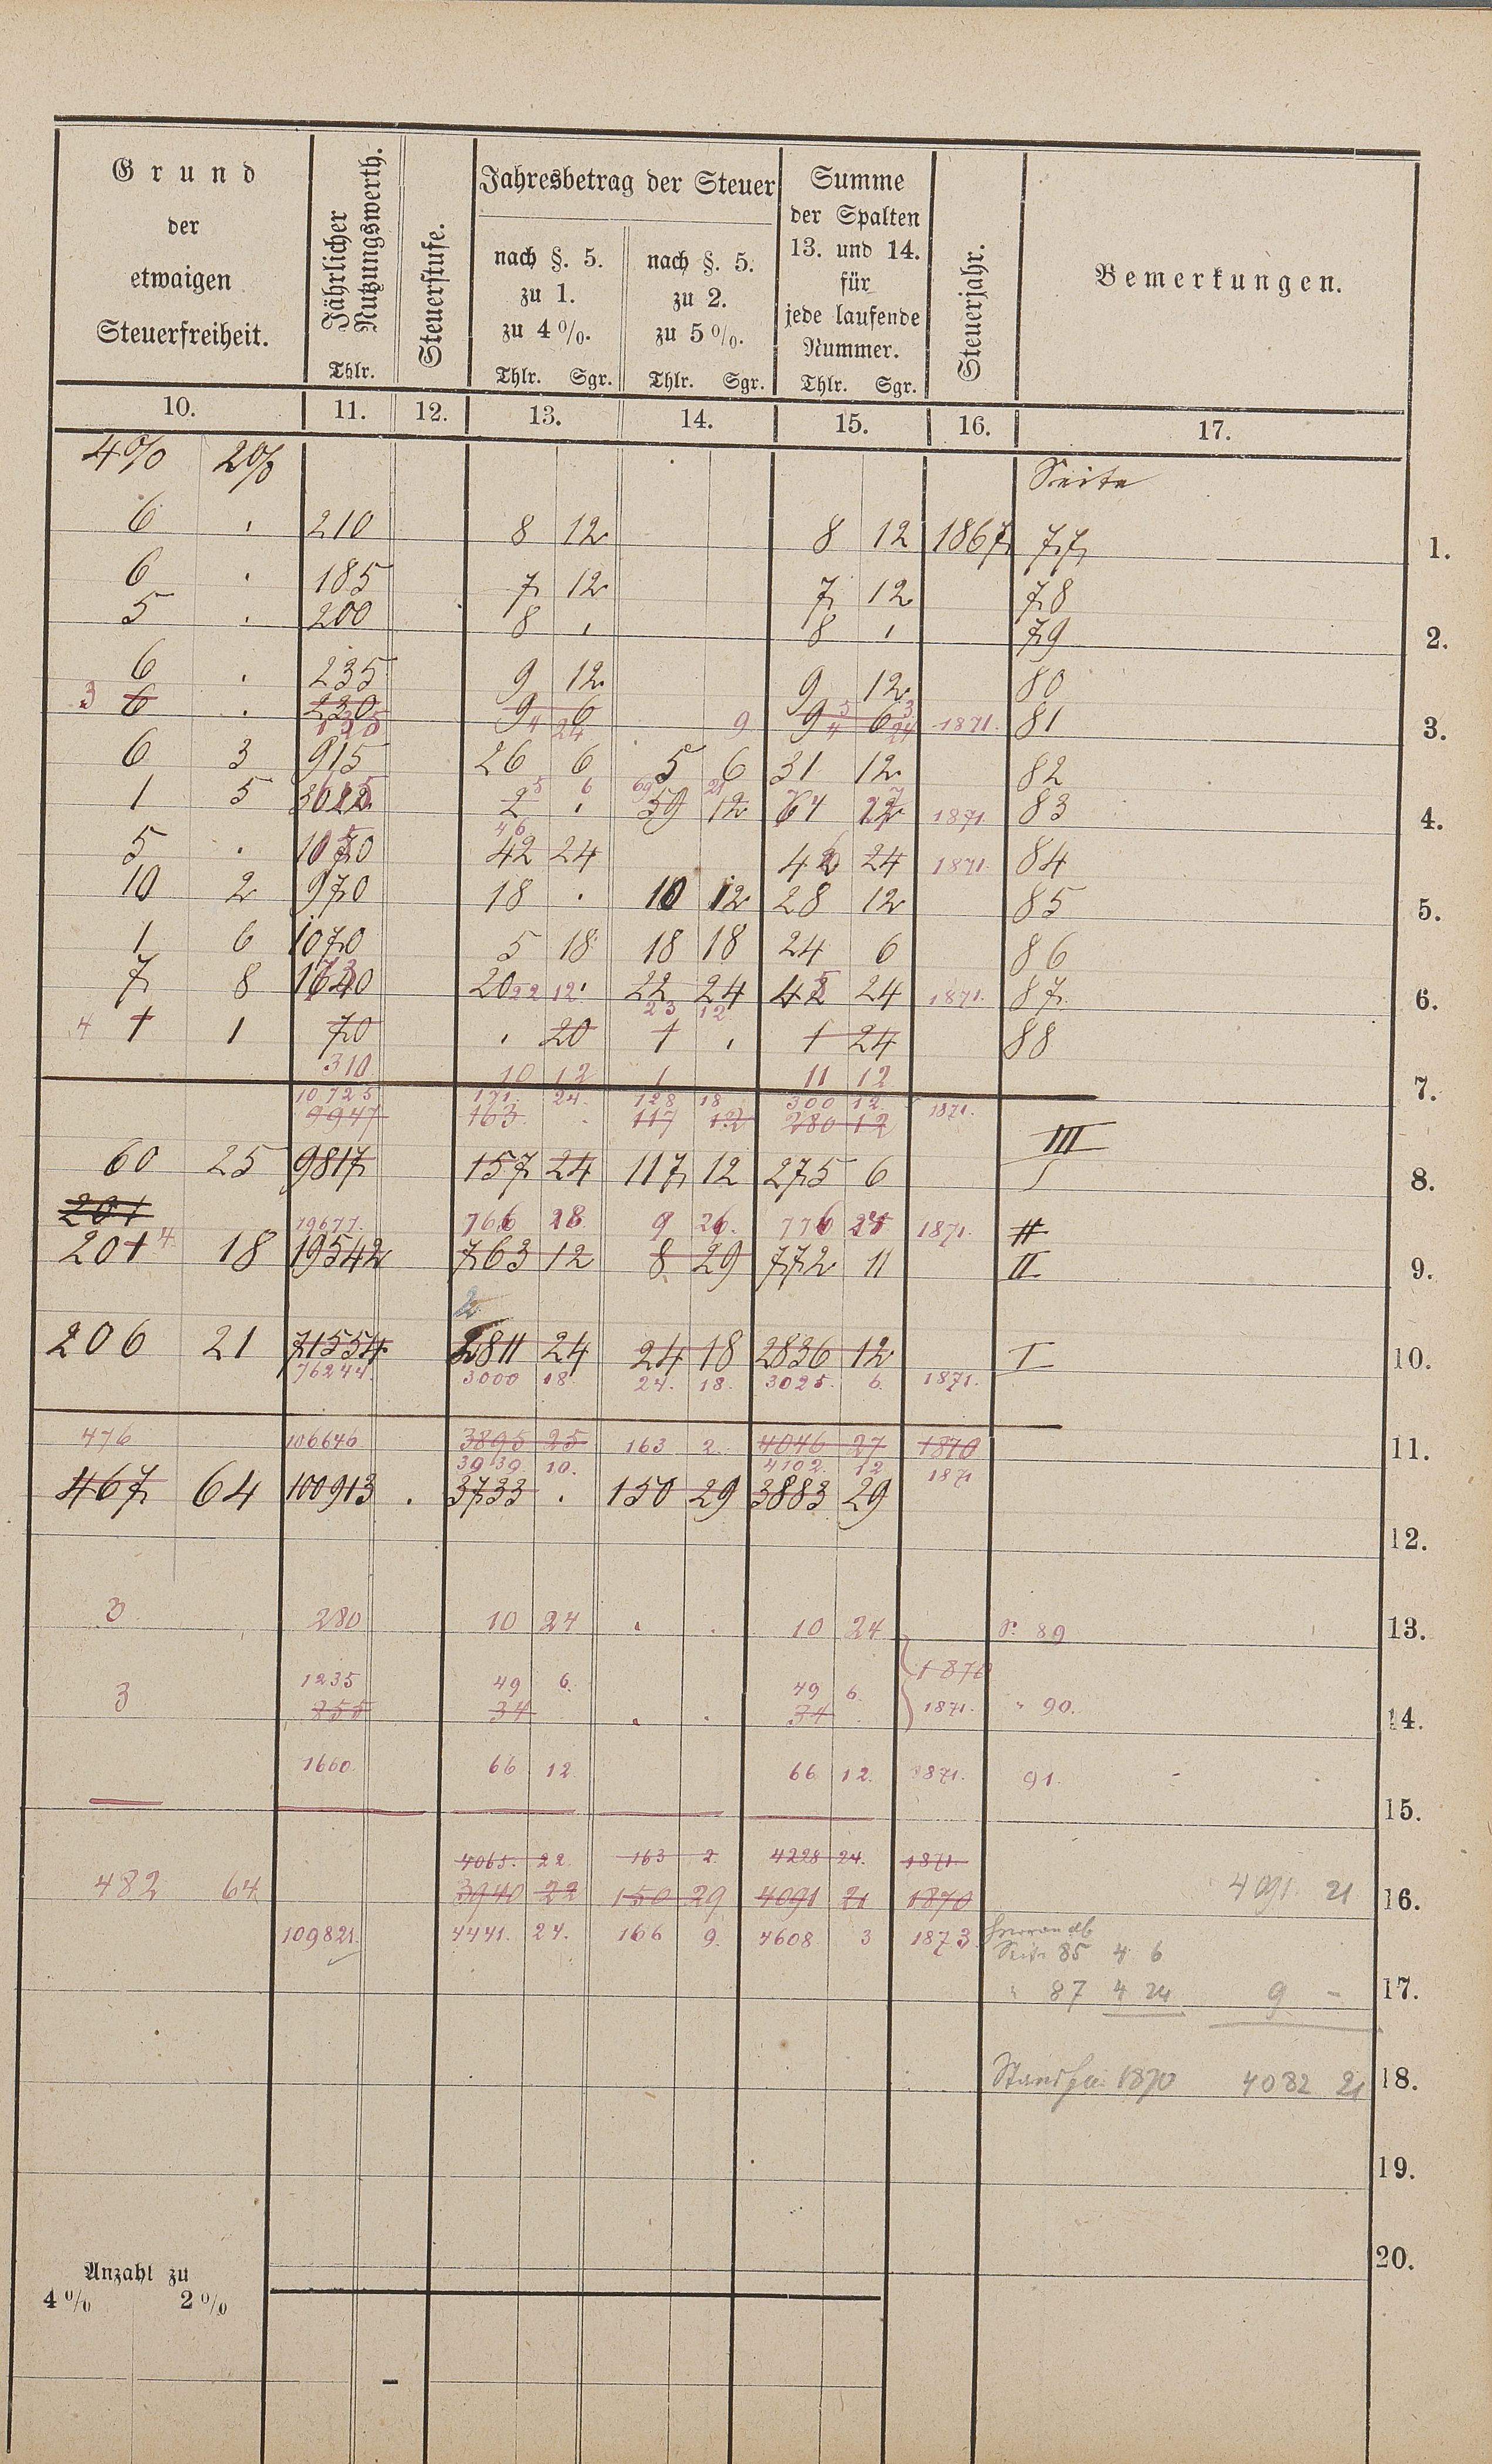 Grund
der
etwaigen
Steuerfreiheit.
Jährlicher
Nutzungswerth.
Thlr.
Steuerstufe.
Jahresbetrag der Steuer
nach §. 5.
zu 1.
zu 4 %.
Thlr. Sgr.
nach §. 5.
zu 2.
zu 5 %.
Thlr. Sgr.
Summe
der Spalten
13. und 14.
für
jede laufende
Nummer.
Thlr. Sgr.
Steuerjahr.
Bemerkungen.
10. 11. 12. 13. 14. 15. 16. 17.
4% 2% Seite
6 . 210 8 12 8 12 1867 77 1.
6 . 185 7 12 7 12 78
5 . 200 8 . 8 . 79 2.
6 . 235 9 12 9 12 80
3 6 . 230 9 6 9 9 6 1871. 81 3.
4 24 4 24
6 3 915 26 6 5 6 31 12 82
5 6 69 21
1 5 2 . 59 12 1871. 83 4.
46
5 . 42 24 24 1871. 84
10 2 970 18 . 10 12 28 12 85 5.
1 6 1070 5 18 18 18 24 6 86
7 8 20 22 12 . 22 24 24 1871. 87 6.
23 12
4 1 1 70 . 20 1 . 1 24 88
310 10 12 1 11 12 7.
10725 171. 24. 128 18 300 12. 1871.
9947 163. . 117 12 280 12 III
60 25 9817 157 24 117 12 275 6 8.
201
19677. 766 28 9 26. 776 24 1871. II
201 4 18 19542 763 12 8 29 772 11 II 9.
2
206 21 71554 2811 24 24 18 2836 12 I 10.
76244. 3000 18. 24. 18. 3025. 6. 1871.
476 106646 3895 25 163 2. 4046 27 1870 11.
3939 10. 4102. 12 1871
467 64 100913 . 3733 . 150 29 3883 29
12.
3 280 10 24 . . 10 24 S. 89 13.
1870
1235 49 6. 49 6.
3 855 34 . . 34 1871. " 90. 14.
1660. 66 12. 66 12. 1871. 91.
15.
4065. 22. 163 2. 4228 24. 1871.
482 64 3940 22 150 29 4091 21 1870 4091. 21 16.
109821. 4441. 24. 166 9. 4608 3 1873. hiervon ab
Seite 85 4 6
" 87 4 24 9 - 17.
Stand für 1870 4082 21 18.
19.
20.
Anzahl zu
4 % 2 %